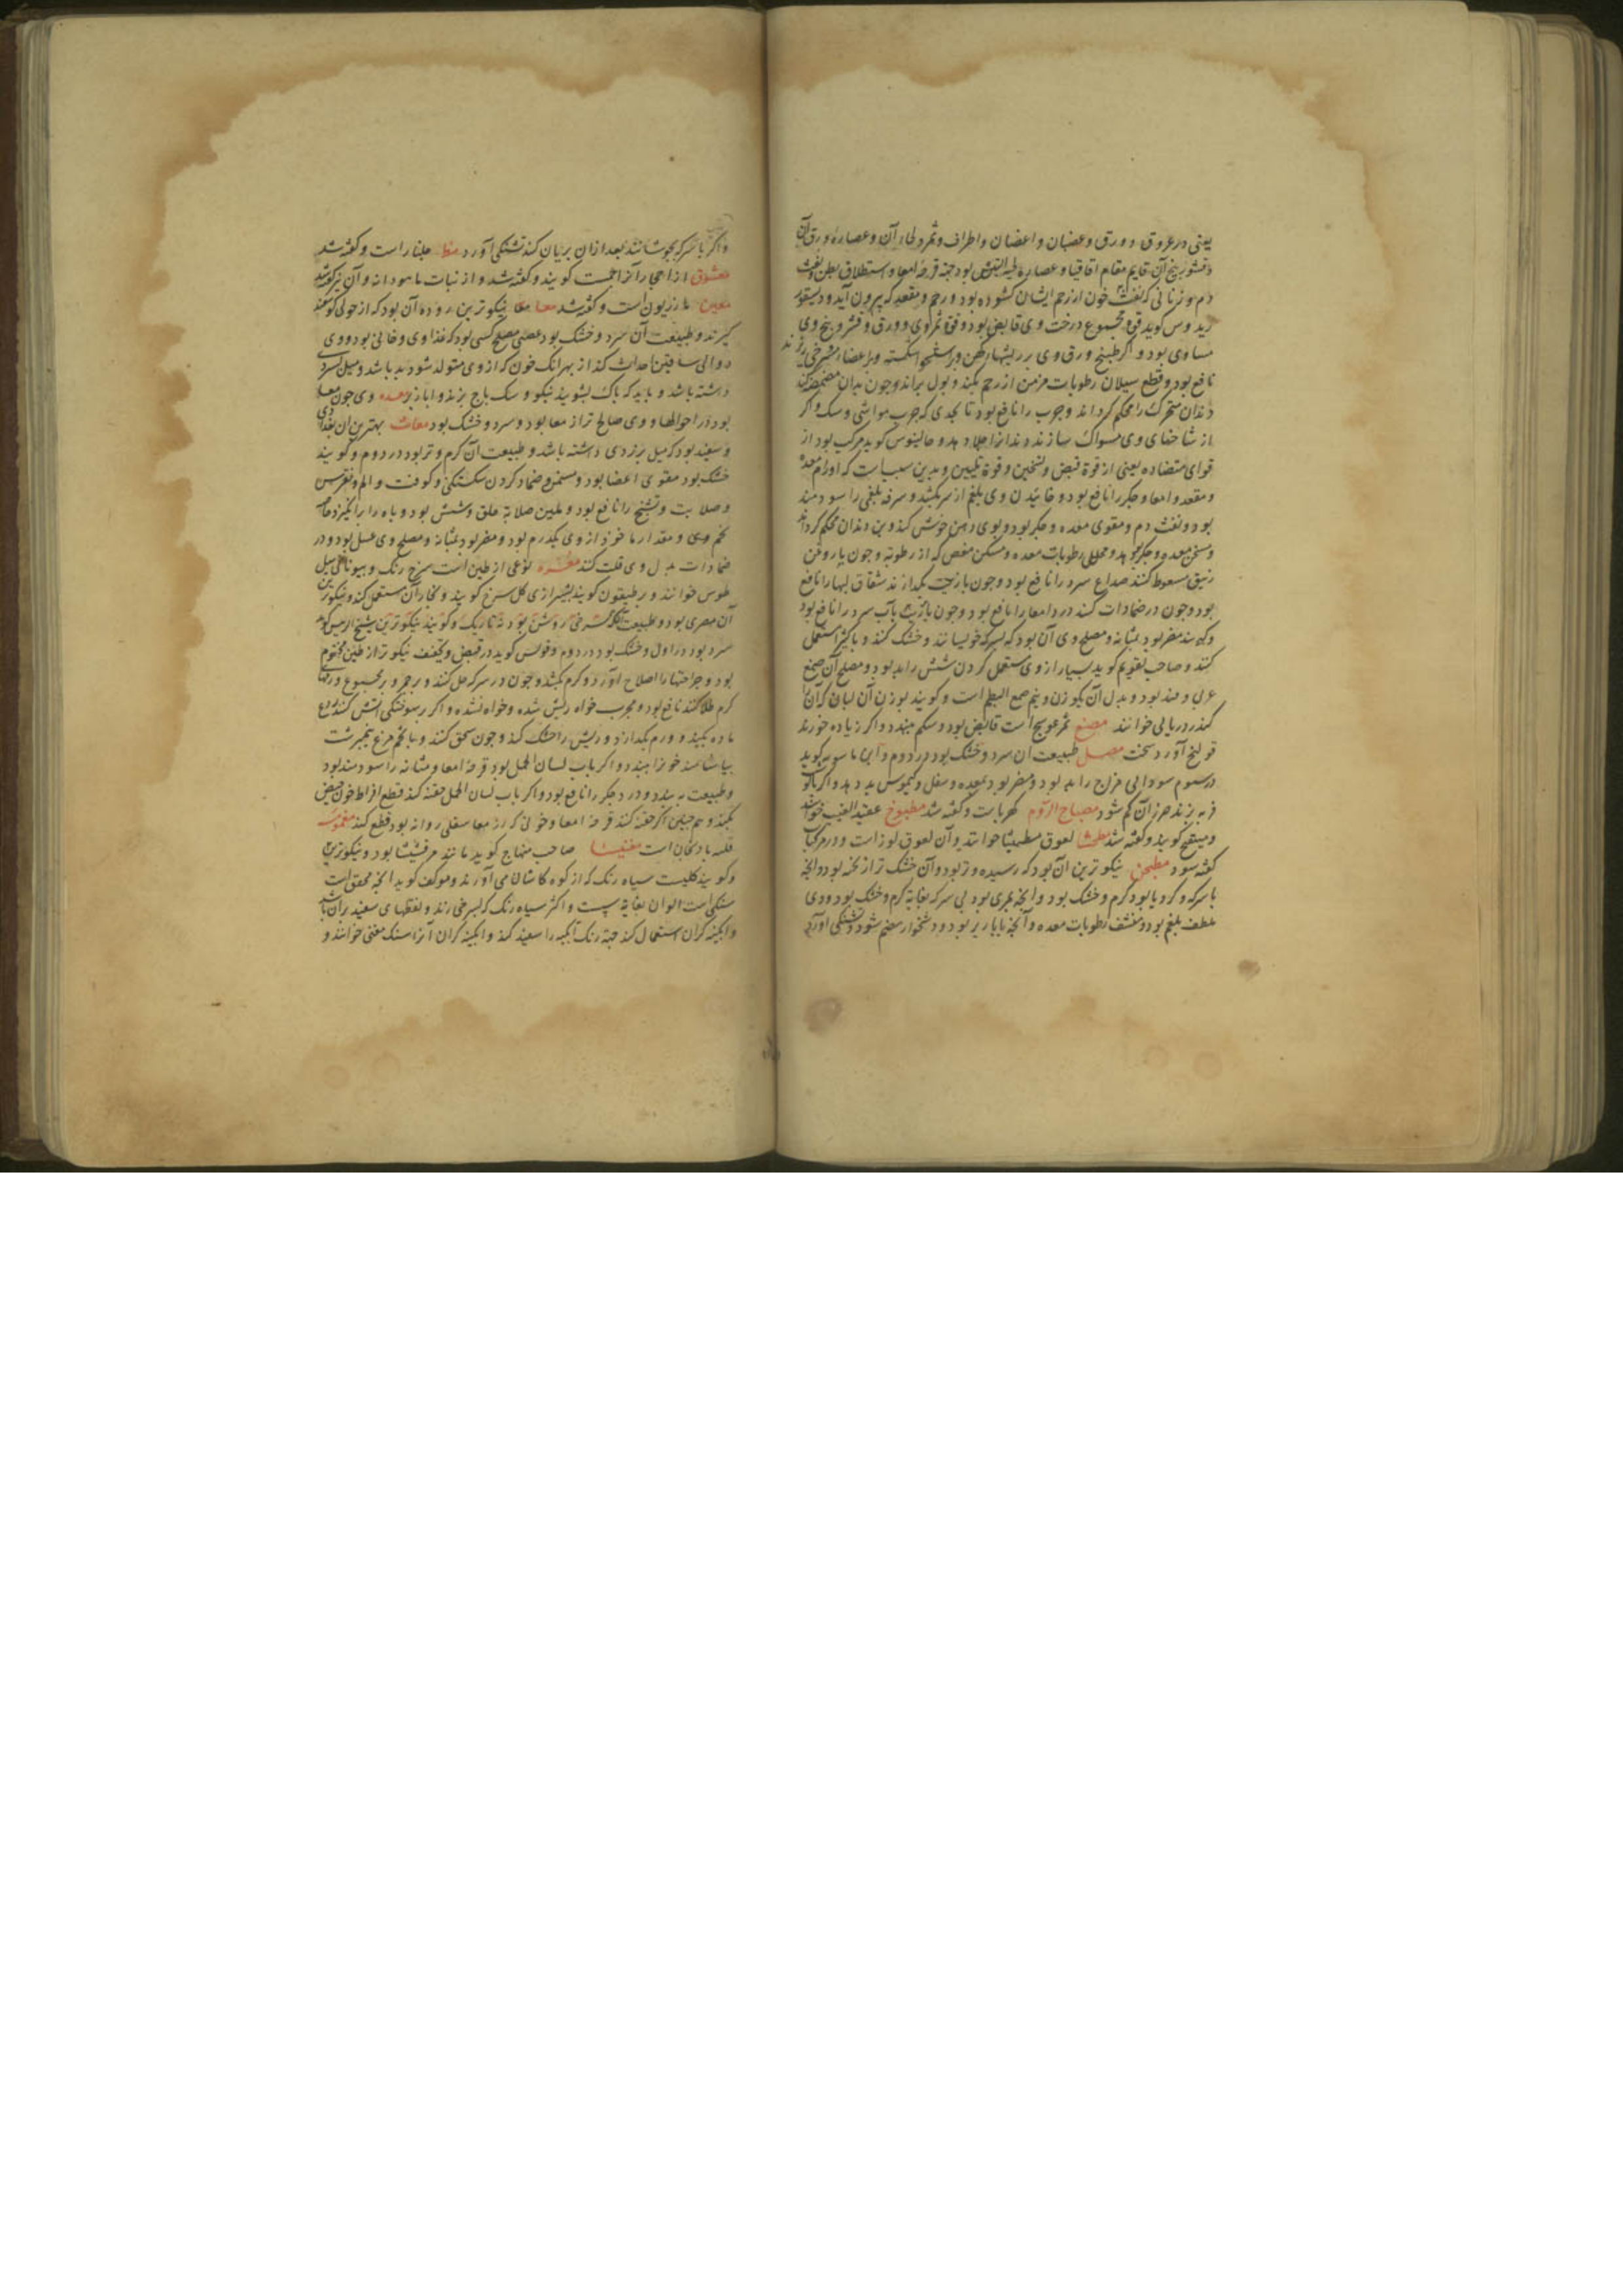 یعنی در عروق و ورق و عضبان و اعضان و اطراف و ثمر و لحاء آن و عصاره ورق آن
و قشور بیخ آن قایم مقام اقاقیا و عصاره لحیة التیس بود جهة قرحه امعا و استطلاق بطن و نفث
دم و زنانی که نفث خون از رحم ایشان کشوده بود و رحم و مقعد که بیرون آید و دیسقو
ریدوس کوید قوة مجموع درخت وی قابض بود و قوة ثمر وی و ورق و قشر و بیخ وی
مساوی بود و اکر طبیخ ورق وی بر ریشهاء کهن و استخوان شکسته و اعضاء
نافع بود و قطع سیلان رطوبات مزمن از رحم بکند و بول براند و چون بدان مضمضه کنند
دندان متحرک را محکم کرداند و جرب را نافع بود تا بحدی که جرب مواشی و سک و اکر
از شاخهای وی مسواک سازند دندانرا جلا دهد و جالینوس کوید مرکب بود از
قوای متضاده یعنی از قوة قبض و تسخین و قوة تلیین و بدین سبب است که اورام معده
و مقعد و امعا و جکر را نافع بود و خائیدن وی بلغم از سر بکشد و سرفه بلغمی را سودمند
بود و نفث دم و مقوی معده و جکر بود و بوی دهن خوش کند و بن دندان محکم کرداند
و مسخن معده و جکر بود و محلل رطوبات معده و مسکن مغص که از رطوبة و چون با روغن
زنبق سعوط کنند صداع سرد را نافع بود و چون با زیت بکدازند شقاق لبها را نافع
بود و چون در ضمادات کنند درد امعا را نافع بود و چون با زیت بآب سرد را نافع بود
و کویند مضر بود بمثانه و مصلح وی آن بود که بسرکه خویسانند و خشک کنند و با کثیرا استعمال
کنند و صاحب تقویم کوید بسیار از وی مستعمل کردن شش را بد بود و مصلح آن صمغ
عربی و قند بود و بدل آن بکوزن و نیم صمغ البطم است و کویند بوزن آن لبان که آن را
کندر دریایی خوانند مصع ثمر عوسج است قابض بود و شکم ببندد و اکر زیاده خورند
قولنج آورد سخت مصل طبیعت آن سرد و خشک بود در دوم و ابن ماسویه کوید
در سوم سودایی مزاج را بد بود و مضر بود بمعده و سفل و کیموس بد دهد و اکر با کوشت
فربه پزند ضرر آن کم شود مصباح الروم کهرباست و کفته شد مطبوخ عقید العنب خوانند
و میبختج کویند و کفته شد مطحثا لعوق مطحیثا خوانند و آن لعوق لوز است و در مرکبات
کفته شود مطبخن نیکوترین آن بود که رسیده و تر بود و آن خشک تر از پخته بود و آنچه
با سرکه و کرویا بود کرم و خشک بود و آنچه بمری بود بی سرکه بغایة کرم و خشک بود و وی
ملطف بلغم بود و منشف رطوبات معده و آنچه با بازیر بود و دشخوار هضم شود و تشنکی آورد
و اکر با سرکه بجوشانند بعد از آن بریان کنند تشنکی آورد مظ جلنار است و کفته شد
معشوق از احجار آنرا جمست کویند و کفته شد و از نبات ماهودانه و آن نیز کفته شد
معین مازریون است و کفته شد معا معا نیکوترین روده آن بود که از حولی کوسفند
کیرند و طبیعت آن سرد و خشک بود عصبی مصلح کسی بود که غذا وی دخانی بود و وی
دوالی ساقین احداث کند از بهر آنک خون که از وی متولد شود بد باشد و میل بسردی
داشته باشد و باید که پاک بشویند نیکو و سک باج پزند و ابازیر معده وی چون معا
بود در احوالها و وی صالح تر از معا بود و سرد و خشک بود مغاث بهترین آن بغدادی
و سفید بود که میل بزردی داشته باشد و طبیعت آن کرم و تر بود در دوم و کویند
خشک بود مقوی اعضا بود و مسمن و ضماد کردن شکستکی و کوفت و الم و نقرس
و صلابت و تشنج را نافع بود و ملین صلابة حلق و شش بود و باه را برانکیزد خاصه
تخم وی و مقدار ماخوذ از وی یکدرم بود و مضر بود بمثانه و مصلح وی عسل بود و در
ضمادات بدل وی قلت کنند مغره نوعی از طین است سرخ رنک و بیونانی میل
طوس خوانند و ریطیقون کویند بشیرازی کل سرخ کویند و نجاران مستعمل کنند و نیکوترین
آن مصری بود و طبیعت آنکه سرخی روشن بود نه تاریک و کویند نیکوترین
سرد بود در اول و خشک بود در دوم و فولس کوید در قبض و تجفیف نیکوتر از طین مختوم
بود و جراحتها را اصلاح آورد و کرم بکشد و چون در سرکه حل کنند و بر حمره و بر مجموع ورمها
کرم طلا کنند نافع بود و مجرب خواه ریش شده و خواه نشده و اکر بر سوختکی آتش کنند
ماده بکیرد و ورم بکدازد و ریش را خشک کند و چون سحق کنند و با تخم مرغ نیمبرشت
بیاشامند خون را ببندد و اکر با آب لسان الحمل بود قرحه امعا و مثانه را سودمند بود
و طبیعت ببندد و درد جکر را نافع بود و اکر با آب لسان الحمل حقنه کنند قطع افراط خون حیض
بکند و هم چنین اکر حقنه کنند قرحه امعا و خونی که از معا سفلی روانه بود قطع کند
قلبه بادنجان است مغنیسا صاحب منهاج کوید مانند مرقشیشا بود و نیکوترین
و کویند کلیست سیاه رنک که از کوه کاشان می آورند و مولف کوید آنچه محقق است
سنکی است الوان بغایة سست و اکثر سیاه رنک که بسرخی زند و نقطهای سفید بر آن باشد
و آبکینه کران استعمال کنند جهة رنک آبکینه را سفید کند و آبکینه کران آنرا سنک مغنی خوانند و